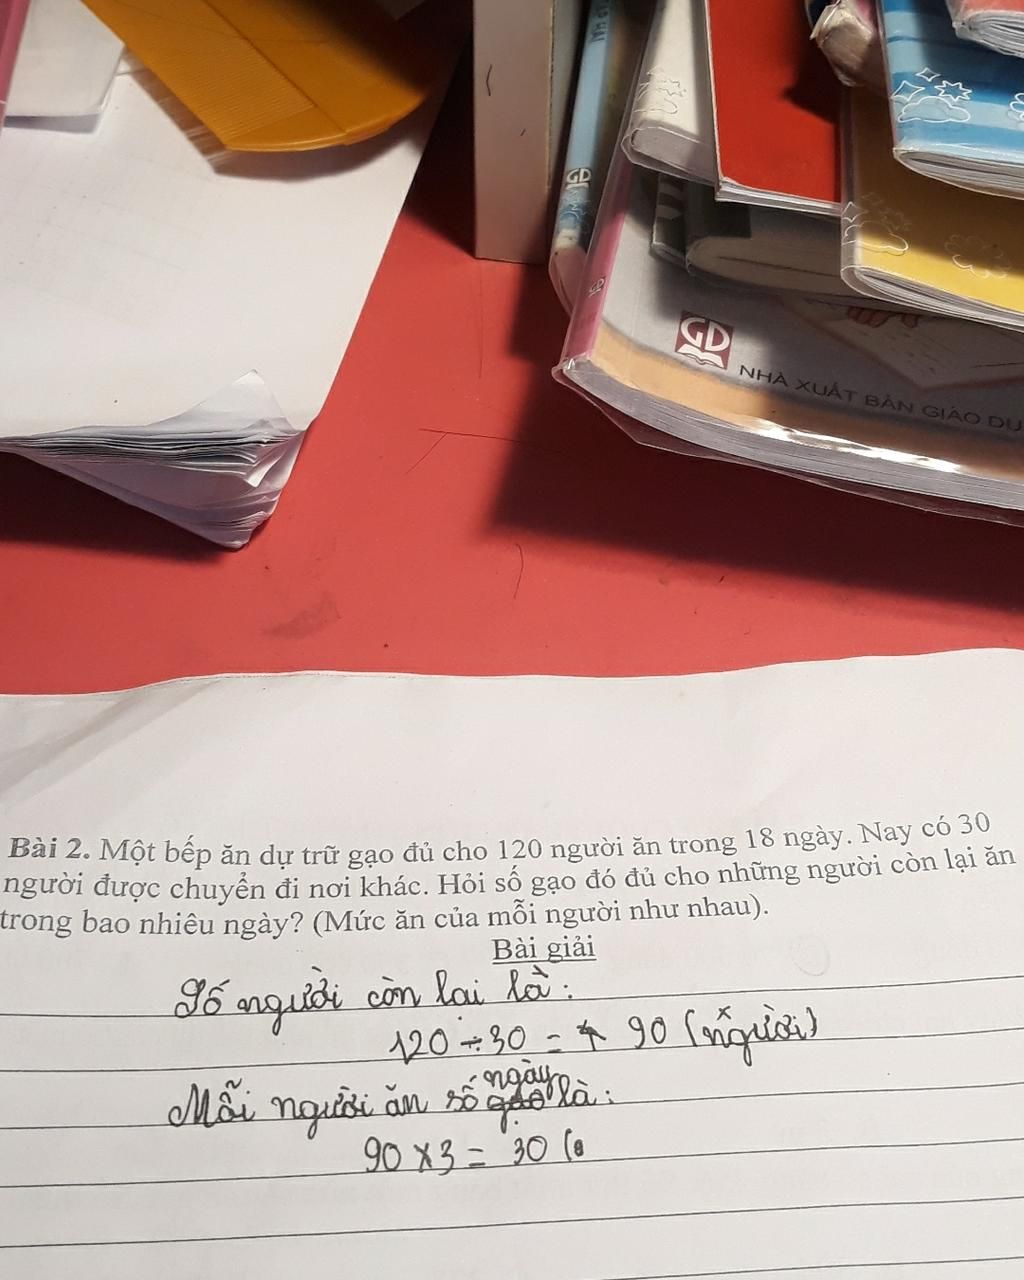 GD
GD
GD
NHÀ XUẤT BẢN GIÁO DỤ
Bài 2. Một bếp ăn dự trữ gạo đủ cho 120 người ăn trong 18 ngày. Nay có 30
người được chuyển đi nơi khác. Hỏi số gạo đó đủ cho những người còn lại ăn
trong bao nhiêu ngày? (Mức ăn của mỗi người như nhau).
Bài giải
Số người còn lại là:
120 ÷ 30 = 90 (người)
Mỗi người ăn số ngày là:
90 x 3 = 30 (